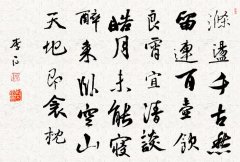 滌蕩千古愁
留連百壺飲
良宵宜清談
皓月未能寢
醉來臥空山
天地即衾枕
李白